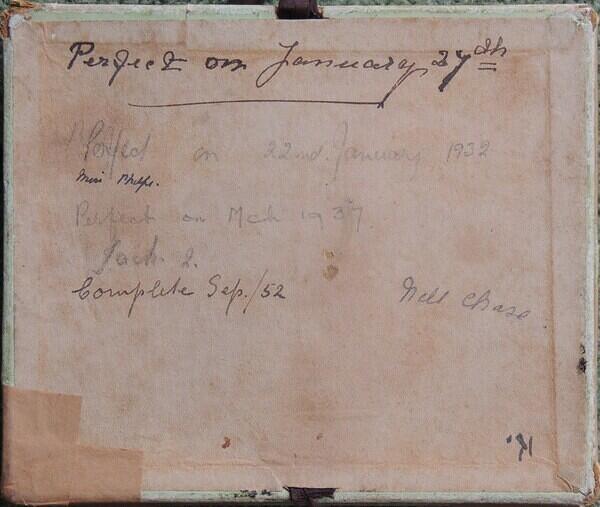 Perfect on January 27th
Perfect on 22nd. January 1932
Miss Phelps.
Perfect on Mch 1937
Jack. 2.
Complete Sep./52
Nell Chase